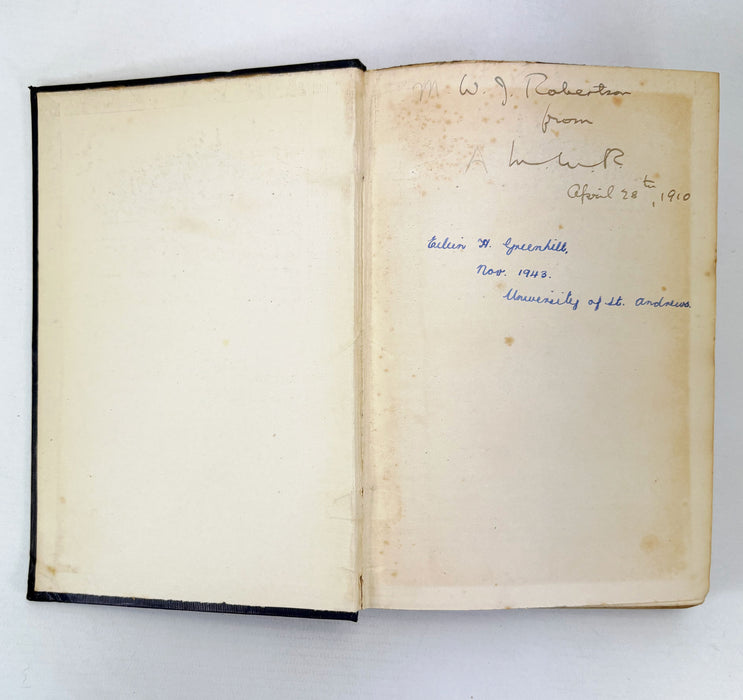 W. J. Robertson
from
April 28th, 1910
Eileen H. Greenhill,
Nov. 1943.
University of St. Andrews.